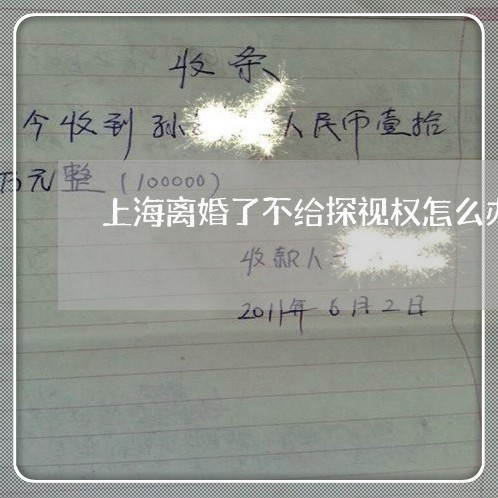 收条
今收到孙 人民币壹拾
万元整(100000)
上海离婚了不给探视权怎么办
收款人
2011年6月2日